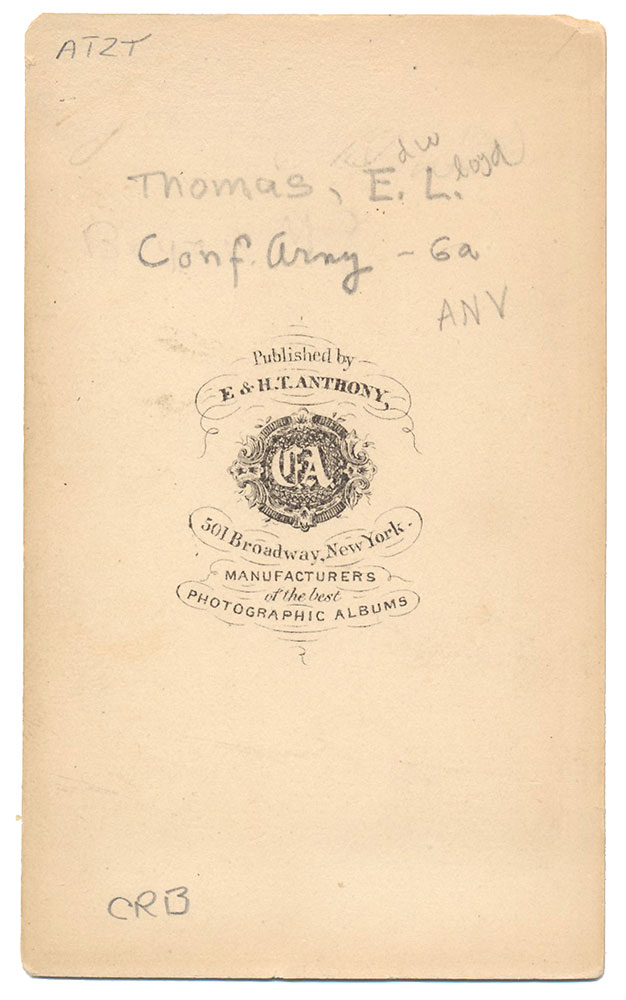 ATZT
Thomas, Edw. Lloyd
Conf. Army - Ga
ANV
Published by
E & H.T. ANTHONY,
EA
501 Broadway, New York.
MANUFACTURERS
of the best
PHOTOGRAPHIC ALBUMS
CRB